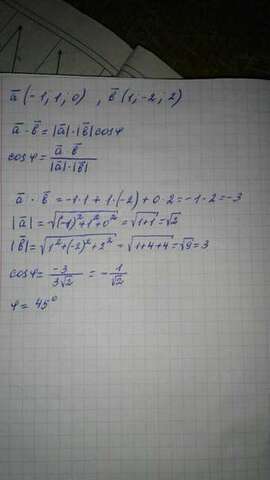 a̅ (-1; 1; 0) , b̅ (1; -2; 2)
a̅ · b̅ = |a̅| · |b̅| cos φ
cos φ = a̅ · b̅ / |a̅| · |b̅|
a̅ · b̅ = -1 · 1 + 1 · (-2) + 0 · 2 = -1 - 2 = -3
|a̅| = √((-1)² + 1² + 0²) = √(1+1) = √2
|b̅| = √(1² + (-2)² + 2²) = √(1+4+4) = √9 = 3
cos φ = -3 / 3√2 = - 1 / √2
φ = 45°